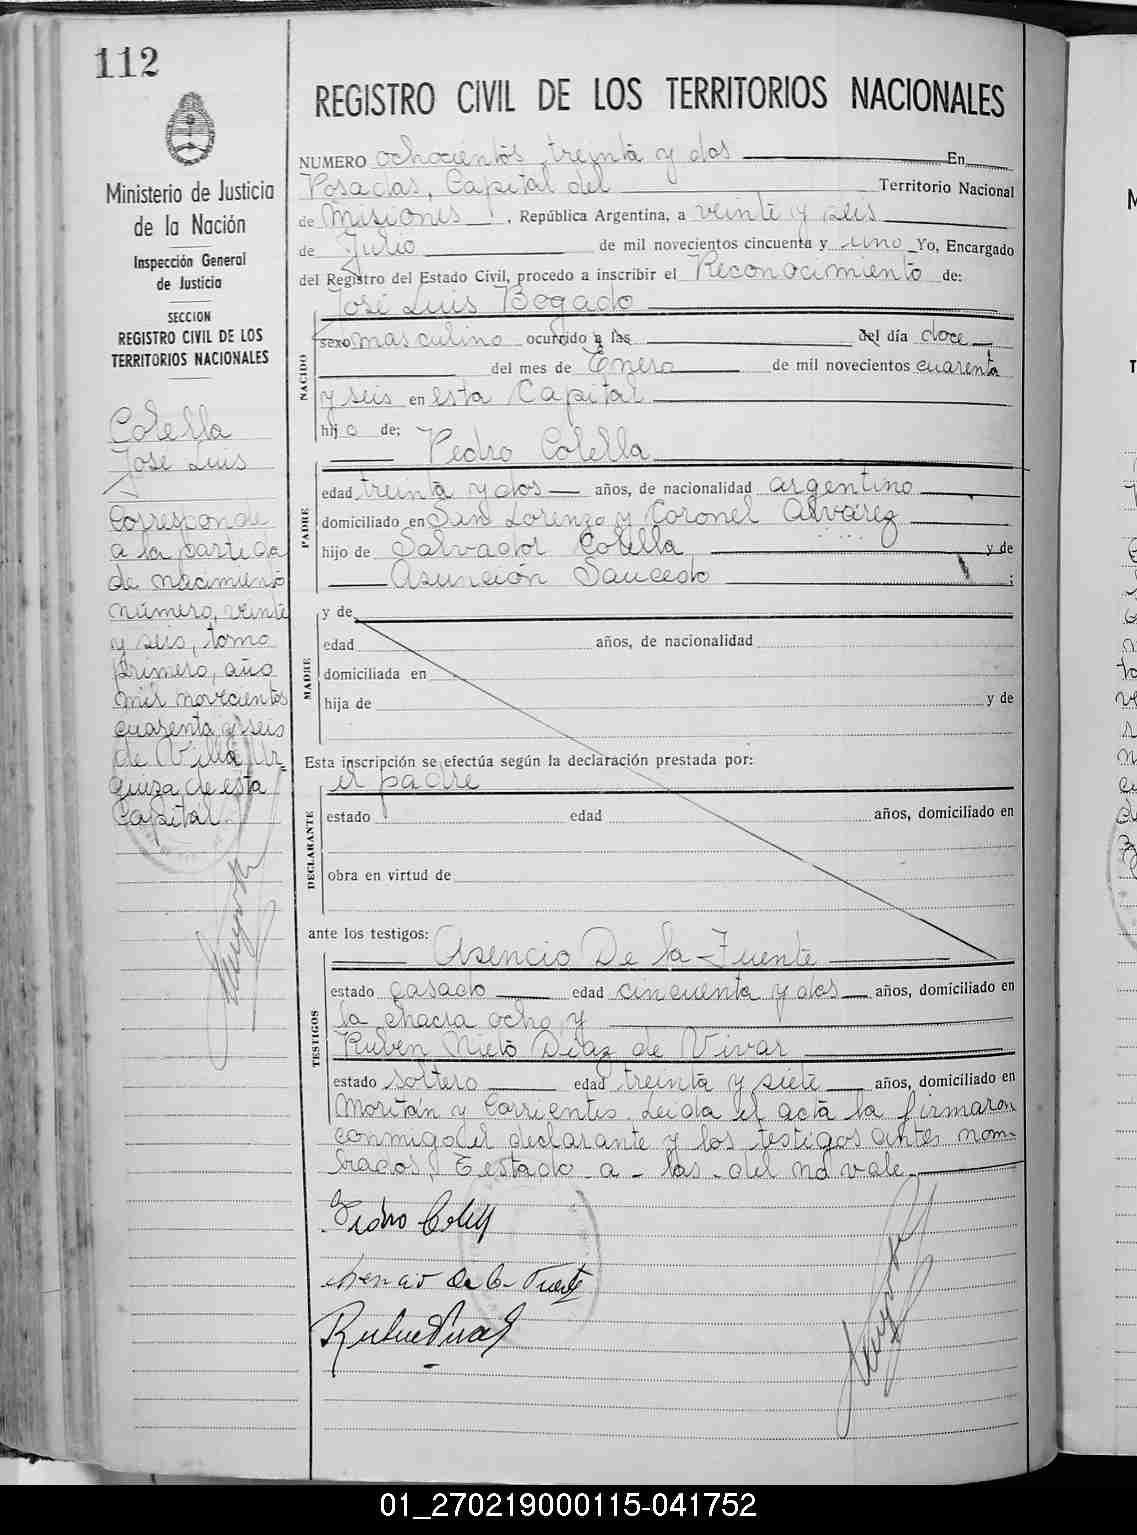 112
Ministerio de Justicia
de la Nación
Inspección General
de Justicia
SECCION
REGISTRO CIVIL DE LOS
TERRITORIOS NACIONALES
Colella
José Luis
Corresponde
a la partida
de nacimiento
número, veinte
y seis, tomo
primero, año
mil novecientos
cuarenta y seis
de Villa Ur-
quiza de esta
Capital.
REGISTRO CIVIL DE LOS TERRITORIOS NACIONALES
NUMERO ochocientos treinta y dos En
Posadas, Capital del Territorio Nacional
de Misiones, República Argentina, a veinte y seis
de Julio de mil novecientos cincuenta y uno Yo, Encargado
del Registro del Estado Civil, procedo a inscribir el Reconocimiento de:
José Luis Bogado
NACIDO
sexo masculino ocurrido a las del día doce
del mes de Enero de mil novecientos cuarenta
y seis en esta Capital
hijo de; Pedro Colella
PADRE
edad treinta y dos años, de nacionalidad argentino
domiciliado en San Lorenzo y Coronel Alvarez
hijo de Salvador Colella y de
Asunción Saucedo ;
MADRE
y de
edad años, de nacionalidad
domiciliada en
hija de y de
Esta inscripción se efectúa según la declaración prestada por:
el padre
DECLARANTE
estado edad años, domiciliado en
obra en virtud de
ante los testigos: Asencio De la Fuente
TESTIGOS
estado casado edad cincuenta y dos años, domiciliado en
la chacra ocho y
Ruben Nieto Diaz de Vivar
estado soltero edad treinta y siete años, domiciliado en
Moritán y Corrientes. Leida el acta la firmaron
conmigo el declarante y los testigos antes nom-
brados. Testado a - las - del no vale.
Pedro Colella
Asencio De la Fuente
01_270219000115-041752